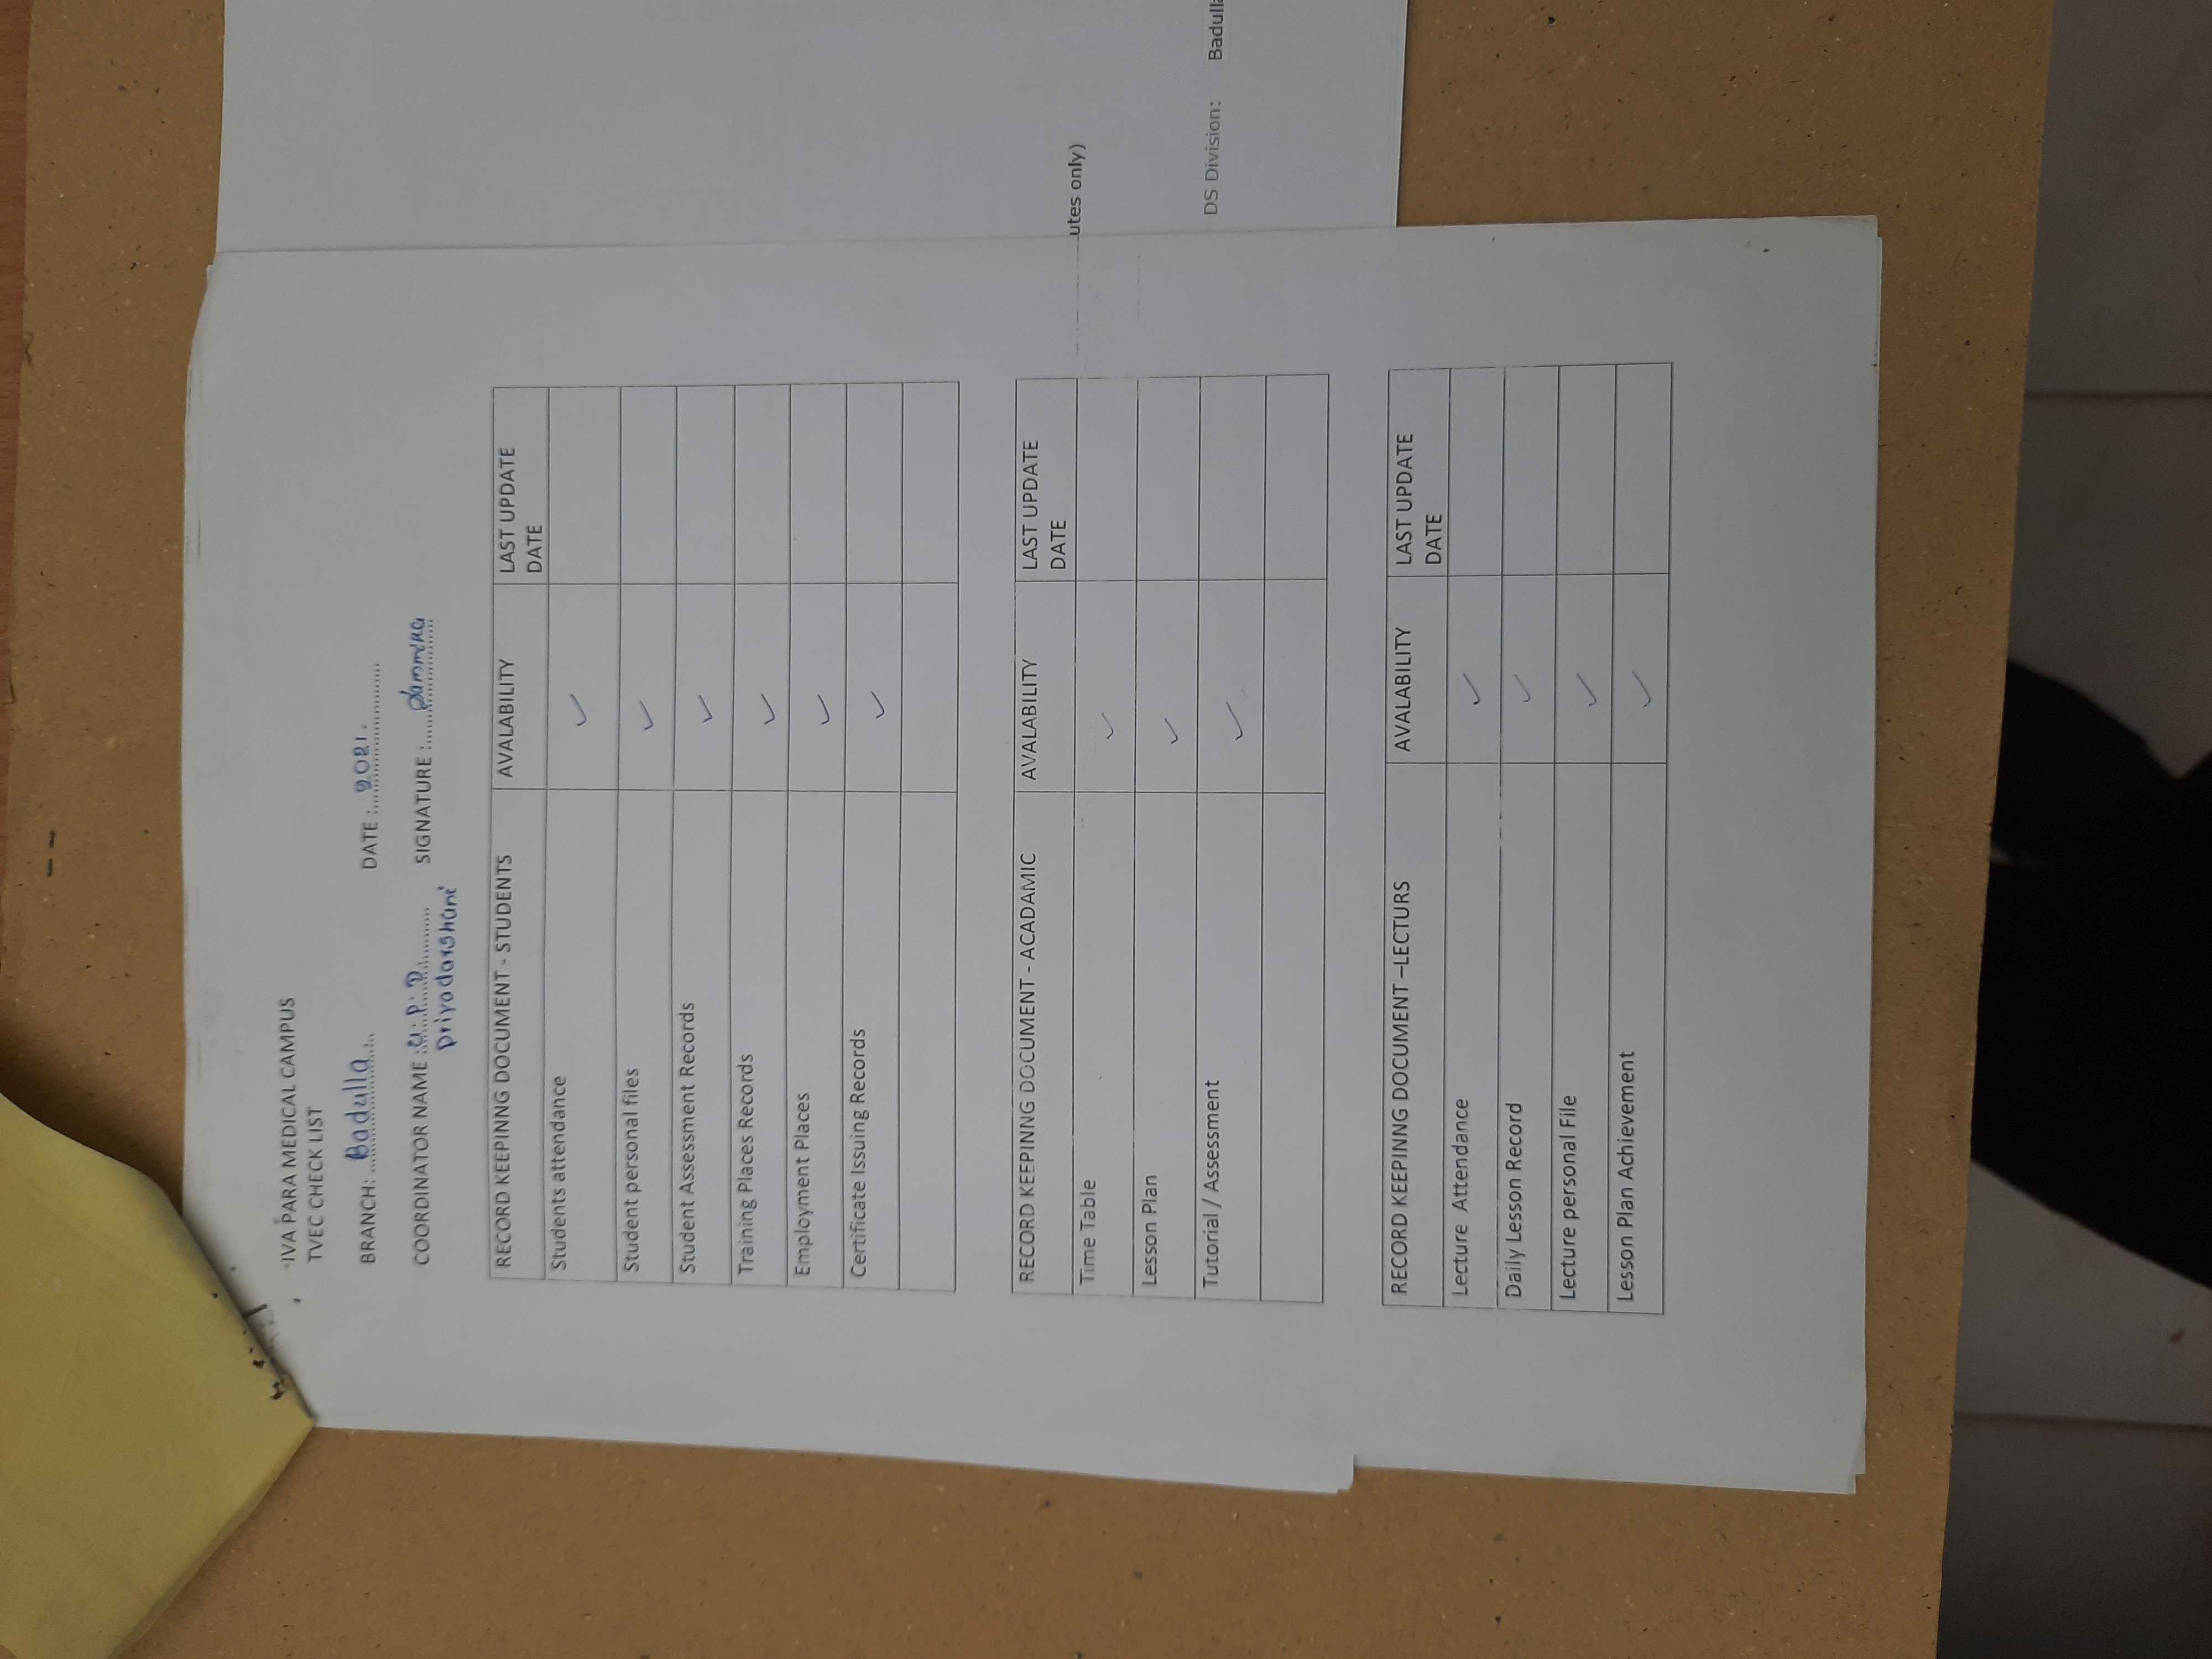 IVA PARA MEDICAL CAMPUS
TVEC CHECK LIST
BRANCH: Badulla DATE : 2021.
COORDINATOR NAME : U.P.D. SIGNATURE :
Priyadarshani
RECORD KEEPINNG DOCUMENT - STUDENTS AVALABILITY LAST UPDATE DATE
Students attendance ✓
Student personal files ✓
Student Assessment Records ✓
Training Places Records ✓
Employment Places ✓
Certificate Issuing Records ✓
RECORD KEEPINNG DOCUMENT - ACADAMIC AVALABILITY LAST UPDATE DATE
Time Table ✓
Lesson Plan ✓
Tutorial / Assessment ✓
RECORD KEEPINNG DOCUMENT –LECTURS AVALABILITY LAST UPDATE DATE
Lecture Attendance ✓
Daily Lesson Record ✓
Lecture personal File ✓
Lesson Plan Achievement ✓
utes only)
DS Division: Badulla